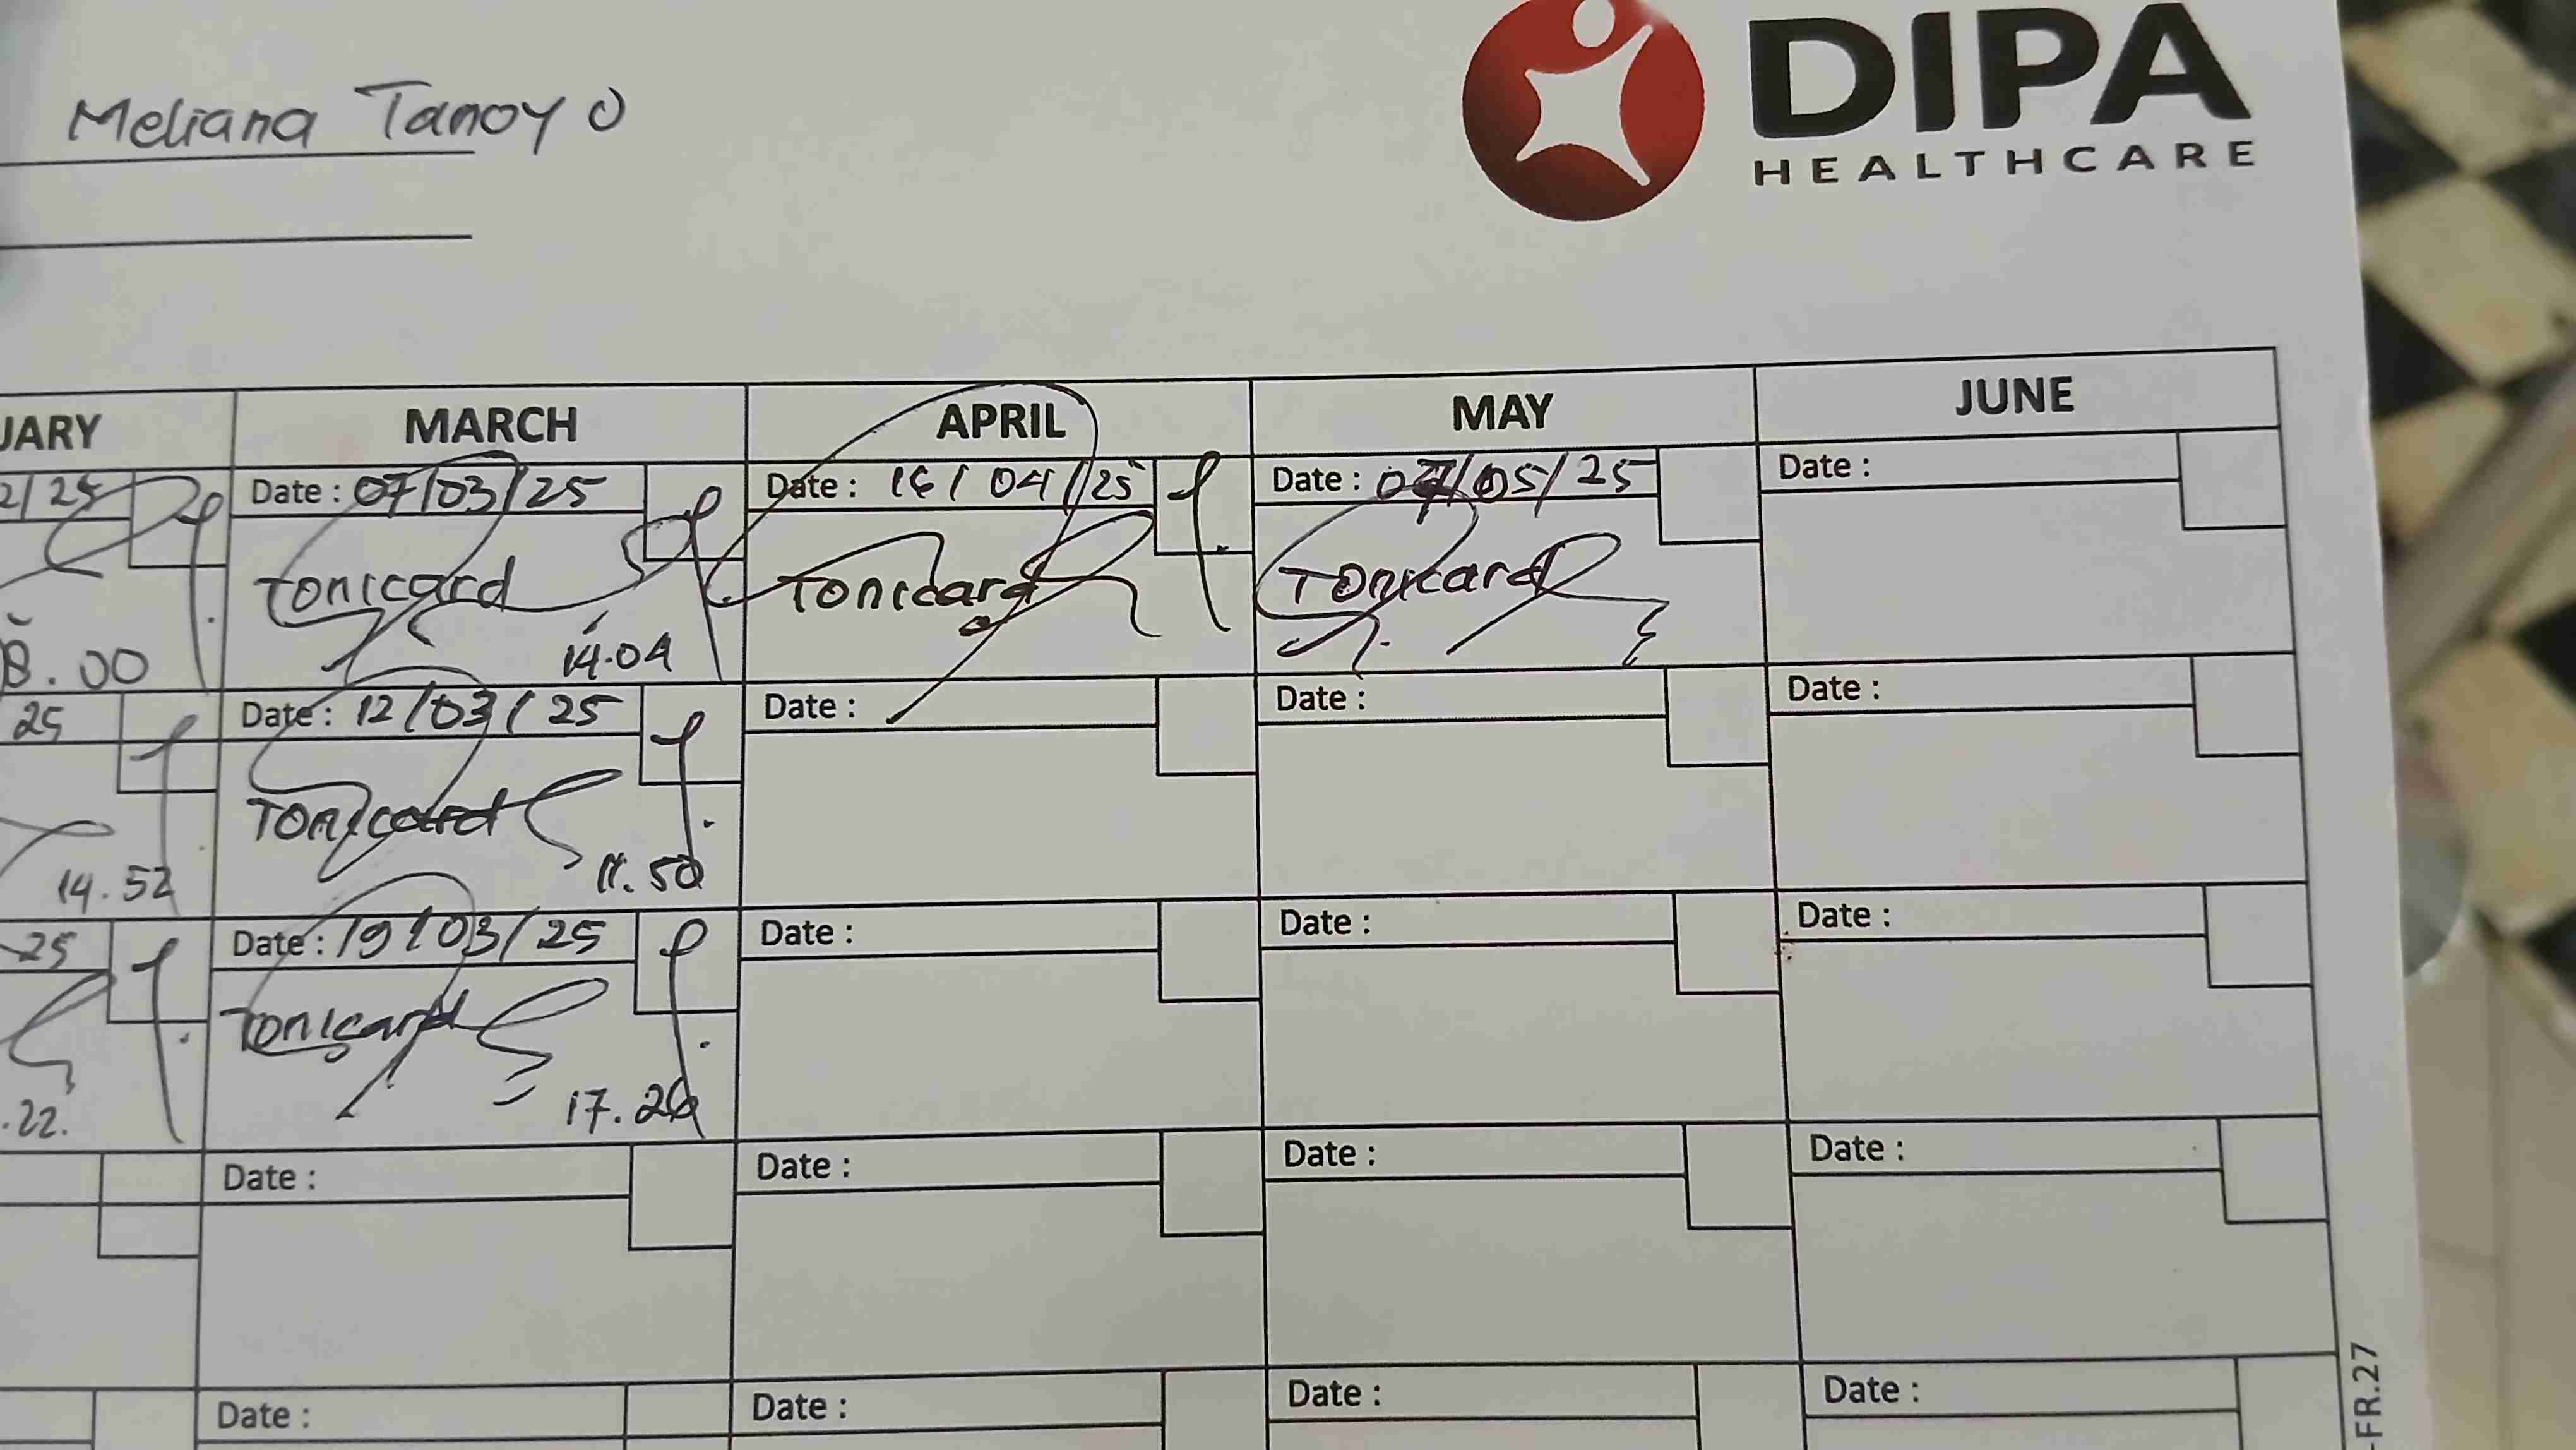 Meliana Tanoyo
DIPA
HEALTHCARE
UARY MARCH APRIL MAY JUNE
2/25 Date : 07/03/25 Date : 16/04/25 Date : 07/05/25 Date :
Tonicard Tonicard Tonicard
8.00 14.04
25 Date : 12/03/25 Date : Date : Date :
Tonicard
14.52 11.50
25 Date : 19/03/25 Date : Date : Date :
Tonicard
.22. 17.26
Date : Date : Date : Date :
Date : Date : Date : Date :
-FR.27